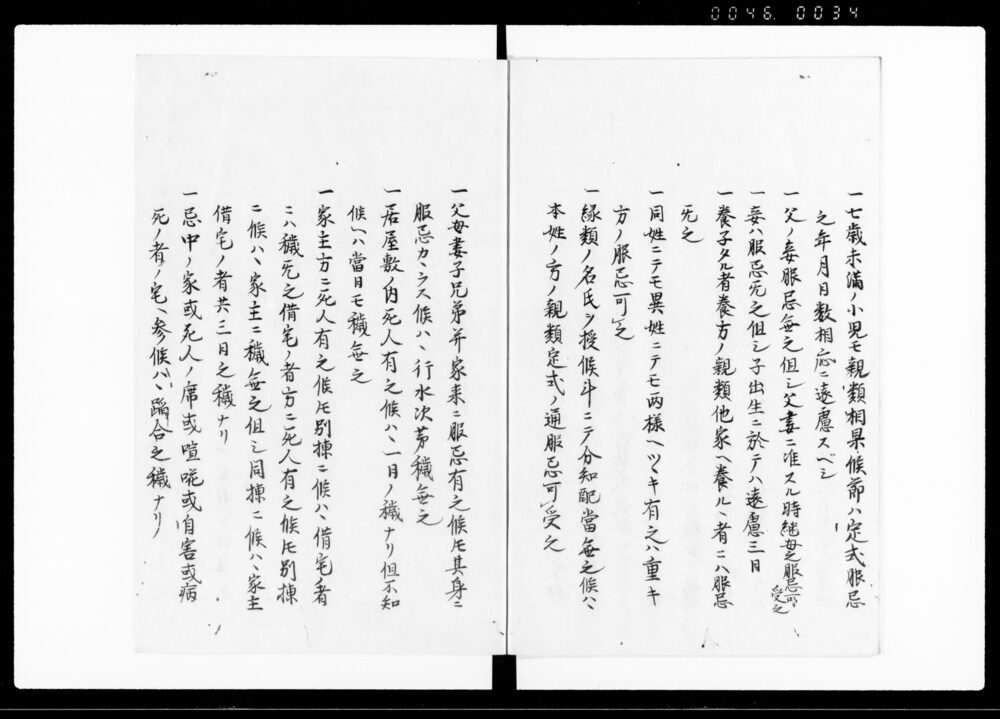 0046.0034
一七歳未満ノ小児モ親類相果候節ハ定式服忌
之年月日数相応ニ遠慮スベシ
一父ノ妾服忌無之但シ父妻ニ准スル時継母之服忌可受之
一妾ハ服忌旡之但シ子出生ニ於テハ遠慮三日
一養子タル者養方ノ親類他家ヘ養ルヽ者ニハ服忌
旡之
一同姓ニテモ異姓ニテモ両様ヘツヽキ有之ハ重キ
方ノ服忌可受之
一縁類ノ名氏ヲ授候斗ニテ分知配當無之候ハヽ
本姓ノ方ノ親類定式ノ通服忌可受之
一父母妻子兄弟并家来ニ服忌有之候𪜈其身ニ
服忌カヽラス候ハヽ行水次第穢無之
一居屋敷ノ内死人有之候ハヽ一日ノ穢ナリ但不知
候ヘハ當日モ穢無之
一家主方ニ死人有之候𪜈別棟ニ候ハヽ借宅ノ者
ニハ穢旡之借宅ノ者方ニ死人有之候𪜈別棟
ニ候ハヽ家主ニ穢無之但シ同棟ニ候ハヽ家主
借宅ノ者共三日之穢ナリ
一忌中ノ家或死人ノ席或喧𠵅或自害或病
死ノ者ノ宅ヘ参候ハヽ踏合之穢ナリ